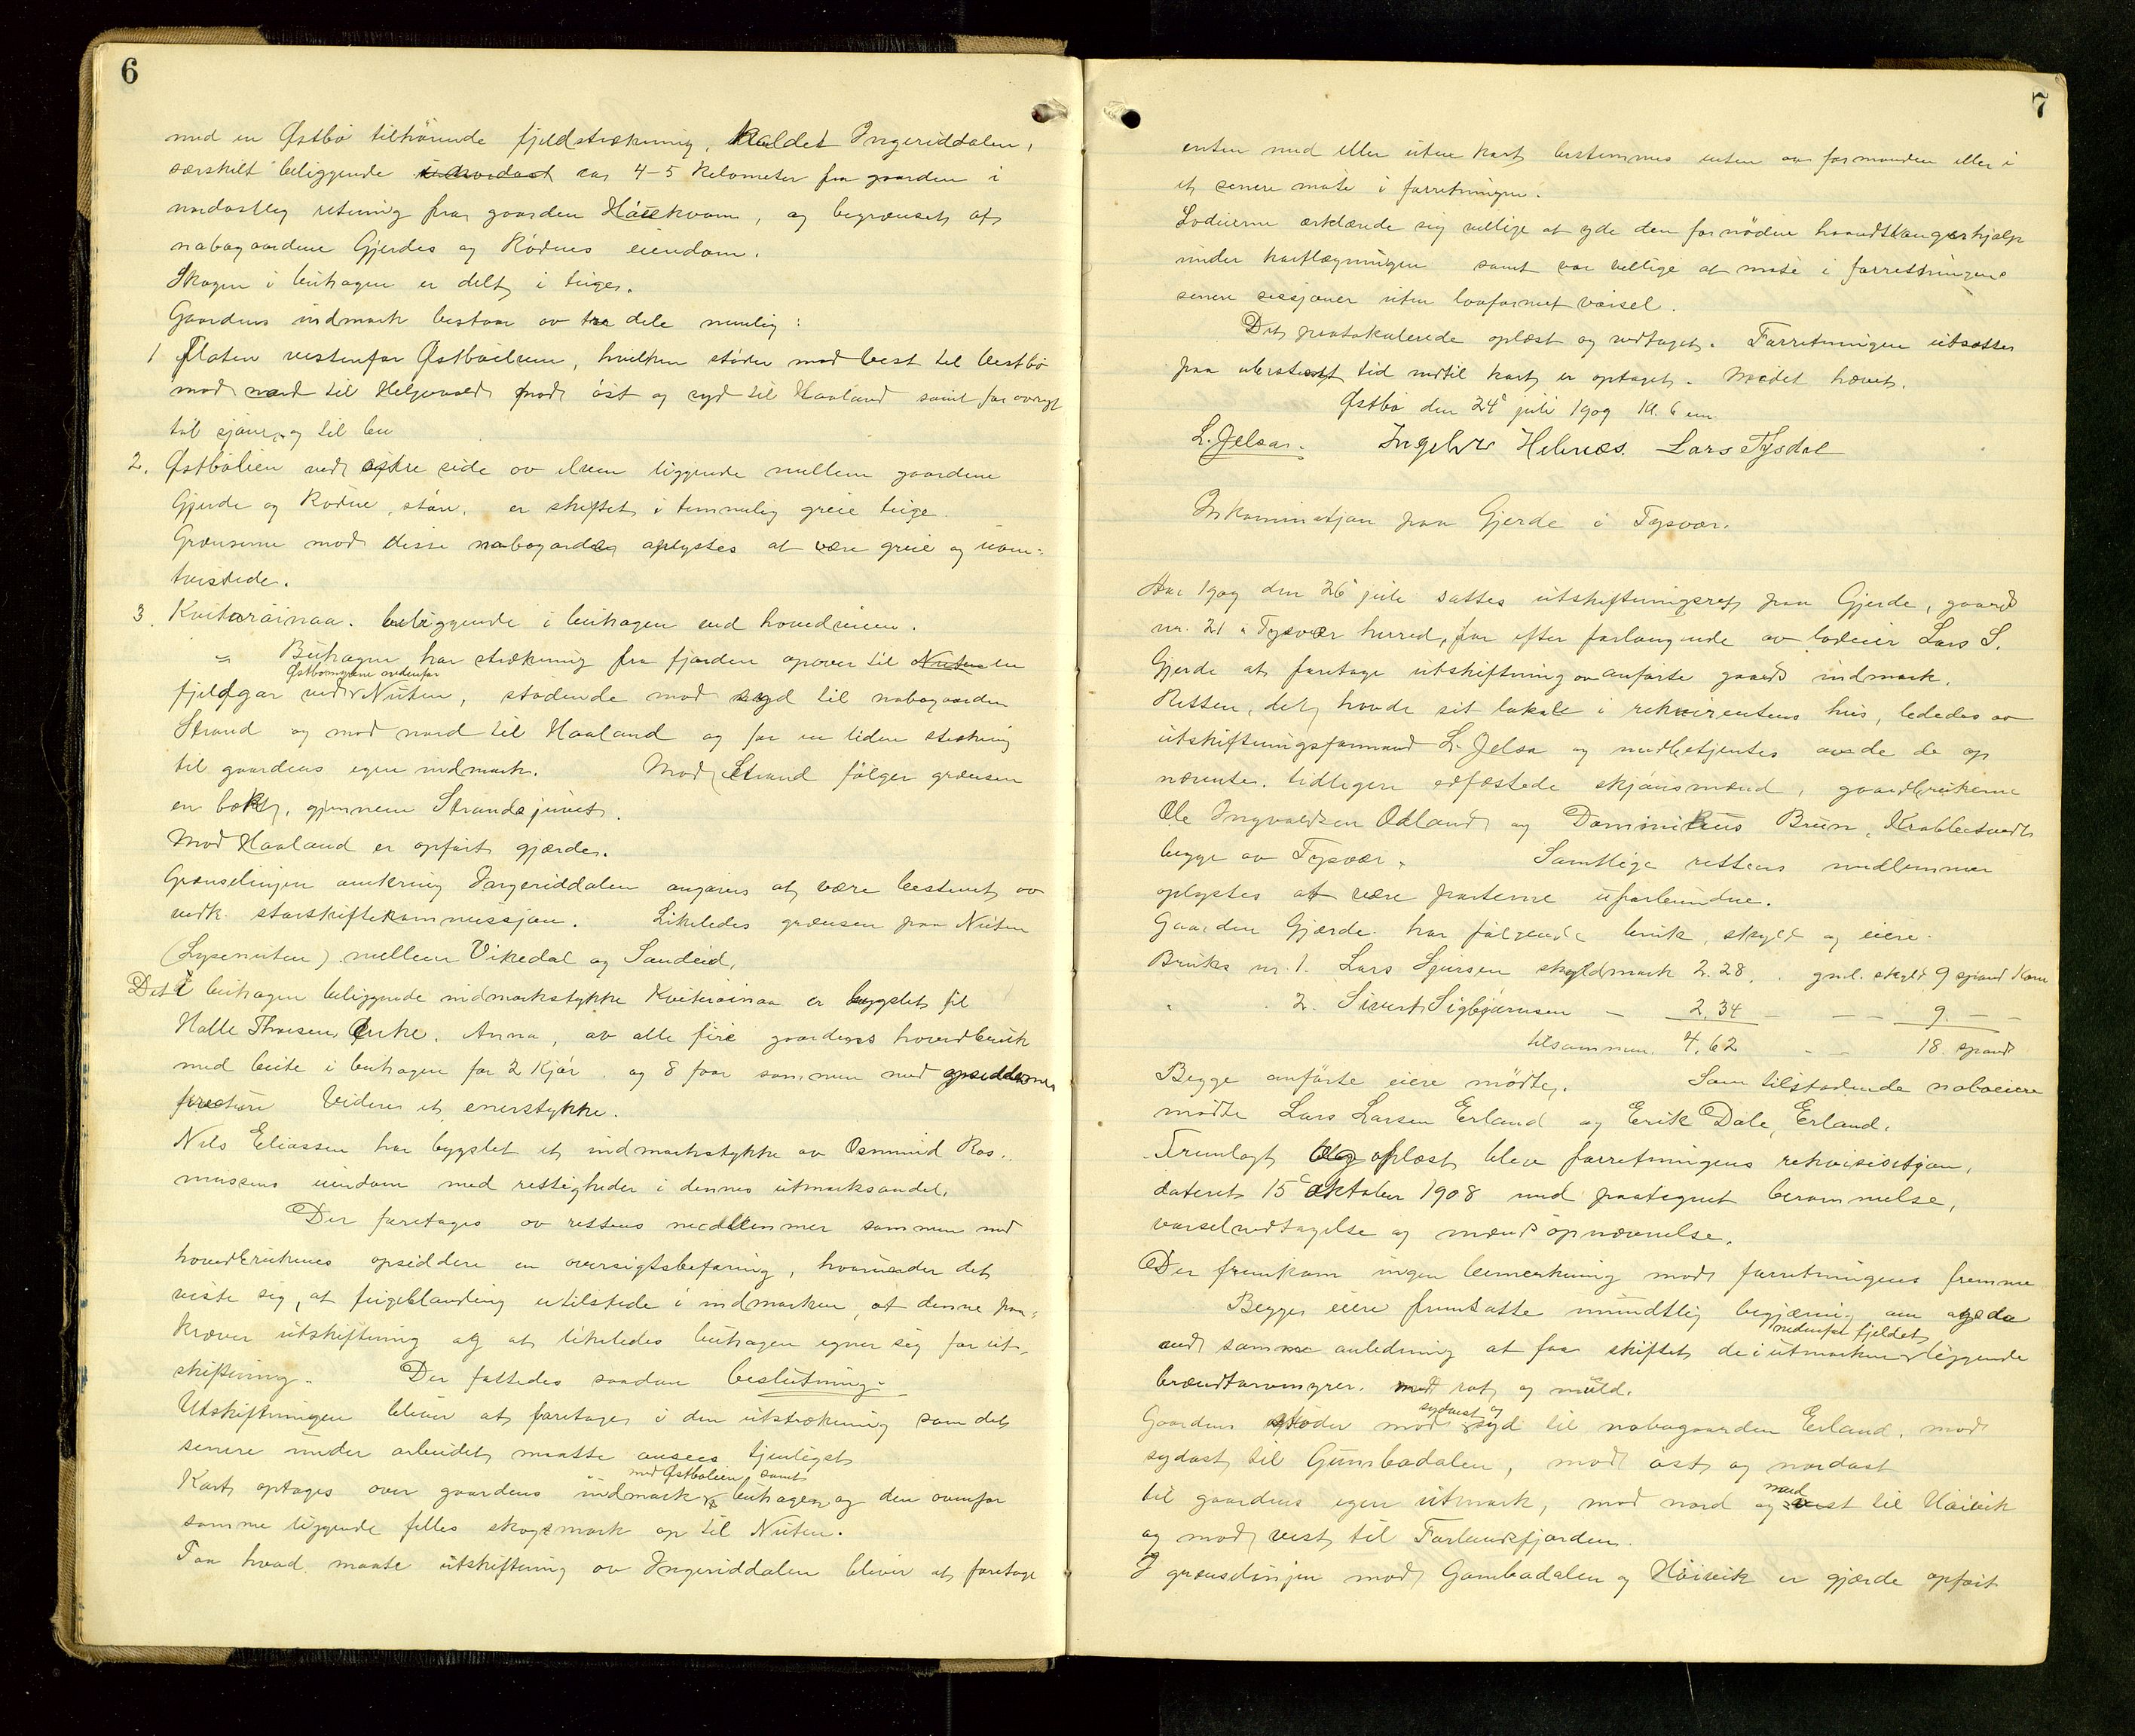 6
med en Østbö tilhörende fjeldstrækning, kaldet Ingeriddalen,
særskilt beliggende ca 4-5 kilometer fra gaarden i
nordostleg retning fra gaarden Höiekvam, og begrænset af
nabogaardene Gjerdes og Rödnes eiendom.
Skogen i buhagen er delt i teiger.
Gaardens indmark bestaar av tre dele nemlig:
1 Flaten vestenfor Østböelven, hvilken støder mod vest til Vestbö
mod nord til Helgevold mod öst og syd til Haaland samt for övrigt
til sjöen og til bu
2. Østbölien ved østre side av elven liggende mellem gaardene
Gjerde og Rödne, större, er skiftet i temmelig greie teige.
Grænserne mod disse nabogarder oplystes at være greie og uom-
tvistede.
3. Kvituröinaa. beliggende i buhagen ved hovedveien.
= Buhagen har strækning fra fjorden opover til
Østbömyrene ovenfor
fjeldgar ved Nuten, stödende mod syd til nabogaarden
Strand og mod nord til Haaland og for en liden strækning
til gaardens egen indmark. Mod Strand følger grænsen
en bæk, gjennem Strandsjuvet.
Mod Haaland er opført gjærde.
Grænselinjen omkring Ingeriddalen angives at være bestemt av
vedk. storskiftekommissjon. Likeledes grænsen paa Nuten
(Lysenuten) mellem Vikedal og Sandeid.
Det i buhagen beliggende indmarkstykke Kvituröinaa er bygslet til
Halle Thoresens Enke. Anna, av alle fire gaardens hovedbruk
med beite i buhagen for 2 kjör og 8 faar sammen med opsiddernes
kreature Videre et enerstykke.
Nils Eliassen har bygslet et indmarkstykke av Osmund Ras-
mussens eiendom med rettigheder i dennes utmarksandel.
Der foretages av rettens medlemmer sammen med
hovedbrukenes opsiddere en oversigtsbefaring, hvorunder det
viste sig, at teigeblanding er tilstede i indmarken, at denne paa-
kræver utskiftning og at likeledes buhagen egner sig for ut-
skiftning. Der fattedes saadan beslutning:
Utskiftningen bliver at foretages i den utstrækning som det
senere under arbeidet maatte ansees tjenligst
med Østbölien, samt
Kart optages over gaardens indmark buhagen og den ovenfor
samme liggende felles skogsmark op til Nuten.
Paa hvad maate utskiftning av Ingeriddalen bliver at foretage
7
enten med eller uten kart bestemmes enten av formanden eller i
et senere möte i forretningen.
Lodeierne erklærede sig villige at yde den fornödne haandtlangerhjælp
under kartlægningen samt var villige at möte i forretningens
senere sessjoner uten lovformet varsel.
Det protokolerede oplæst og vedtaget. Forretningen utsattes
paa ubestemt tid indtil kart er optaget. Mödet hævet.
Østbö den 24de juli 1909 kl. 6 em.
L. Jelsa. Ingebr. Helnæs. Lars Tysdal
Inkaminasjon paa Gjerde i Tysvær.
Aar 1909 den 26 juli sattes utskiftningsret paa Gjerde, gaards
nr. 21 i Tysvær herred, for efter forlangende av lodeier Lars S.
Gjerde at foretage utskiftning av anførte gaards indmark.
Retten, det havde sit lokale i rekvirentens hus, lededes av
utskiftningsformand L. Jelsa og medbetjentes av de op
nævnte tidligere edfæstede skjönsmænd, gaardbrukerne
Ole Ingvaldsen Odland og Dominikus Brun, Krabbetveit
begge av Tysvær. Samtlige rettens medlemmer
oplystes at være parterne uforbundne.
Gaarden Gjerde har følgende bruk, skyld og eiere.
Bruks nr. 1. Lars Sjursen skyldmark 2.28. gml. skyld 9 spand korn
" 2. Sivert Sigbjørnsen — 2,34 — — — 9. — —
tilsammen. 4,62 - - 18 spand
Begge anförte eiere mödte. Som tilstødende naboeiere
mødte Lars Larsen Erland og Erik Dale, Erland.
Fremlagt og oplæst blev forretningens rekvisisjon,
dateret 15de oktober 1908 med paategnet berammelse,
varselvedtagelse og mændsopnævnelse.
Der fremkom ingen bemerkning mod forretningens fremme
Begge eiere fremsatte mundtlig begjæring om ogsaa
nedenfor fjeldet
ved samme anledning at faa skiftet de i utmarken liggende
brændtorvmyrer. med rot og muld.
sydvest og
Gaarden støder mod syd til nabogaarden Erland, mod
sydost til Gunsbadalen, mod öst og nordost
nord
til gaardens egen utmark, mod nord og vest til Höivik
og mod vest til Førlandsfjorden.
I grænselinjen mod Gombadalen og Höivik er gjærde opfört